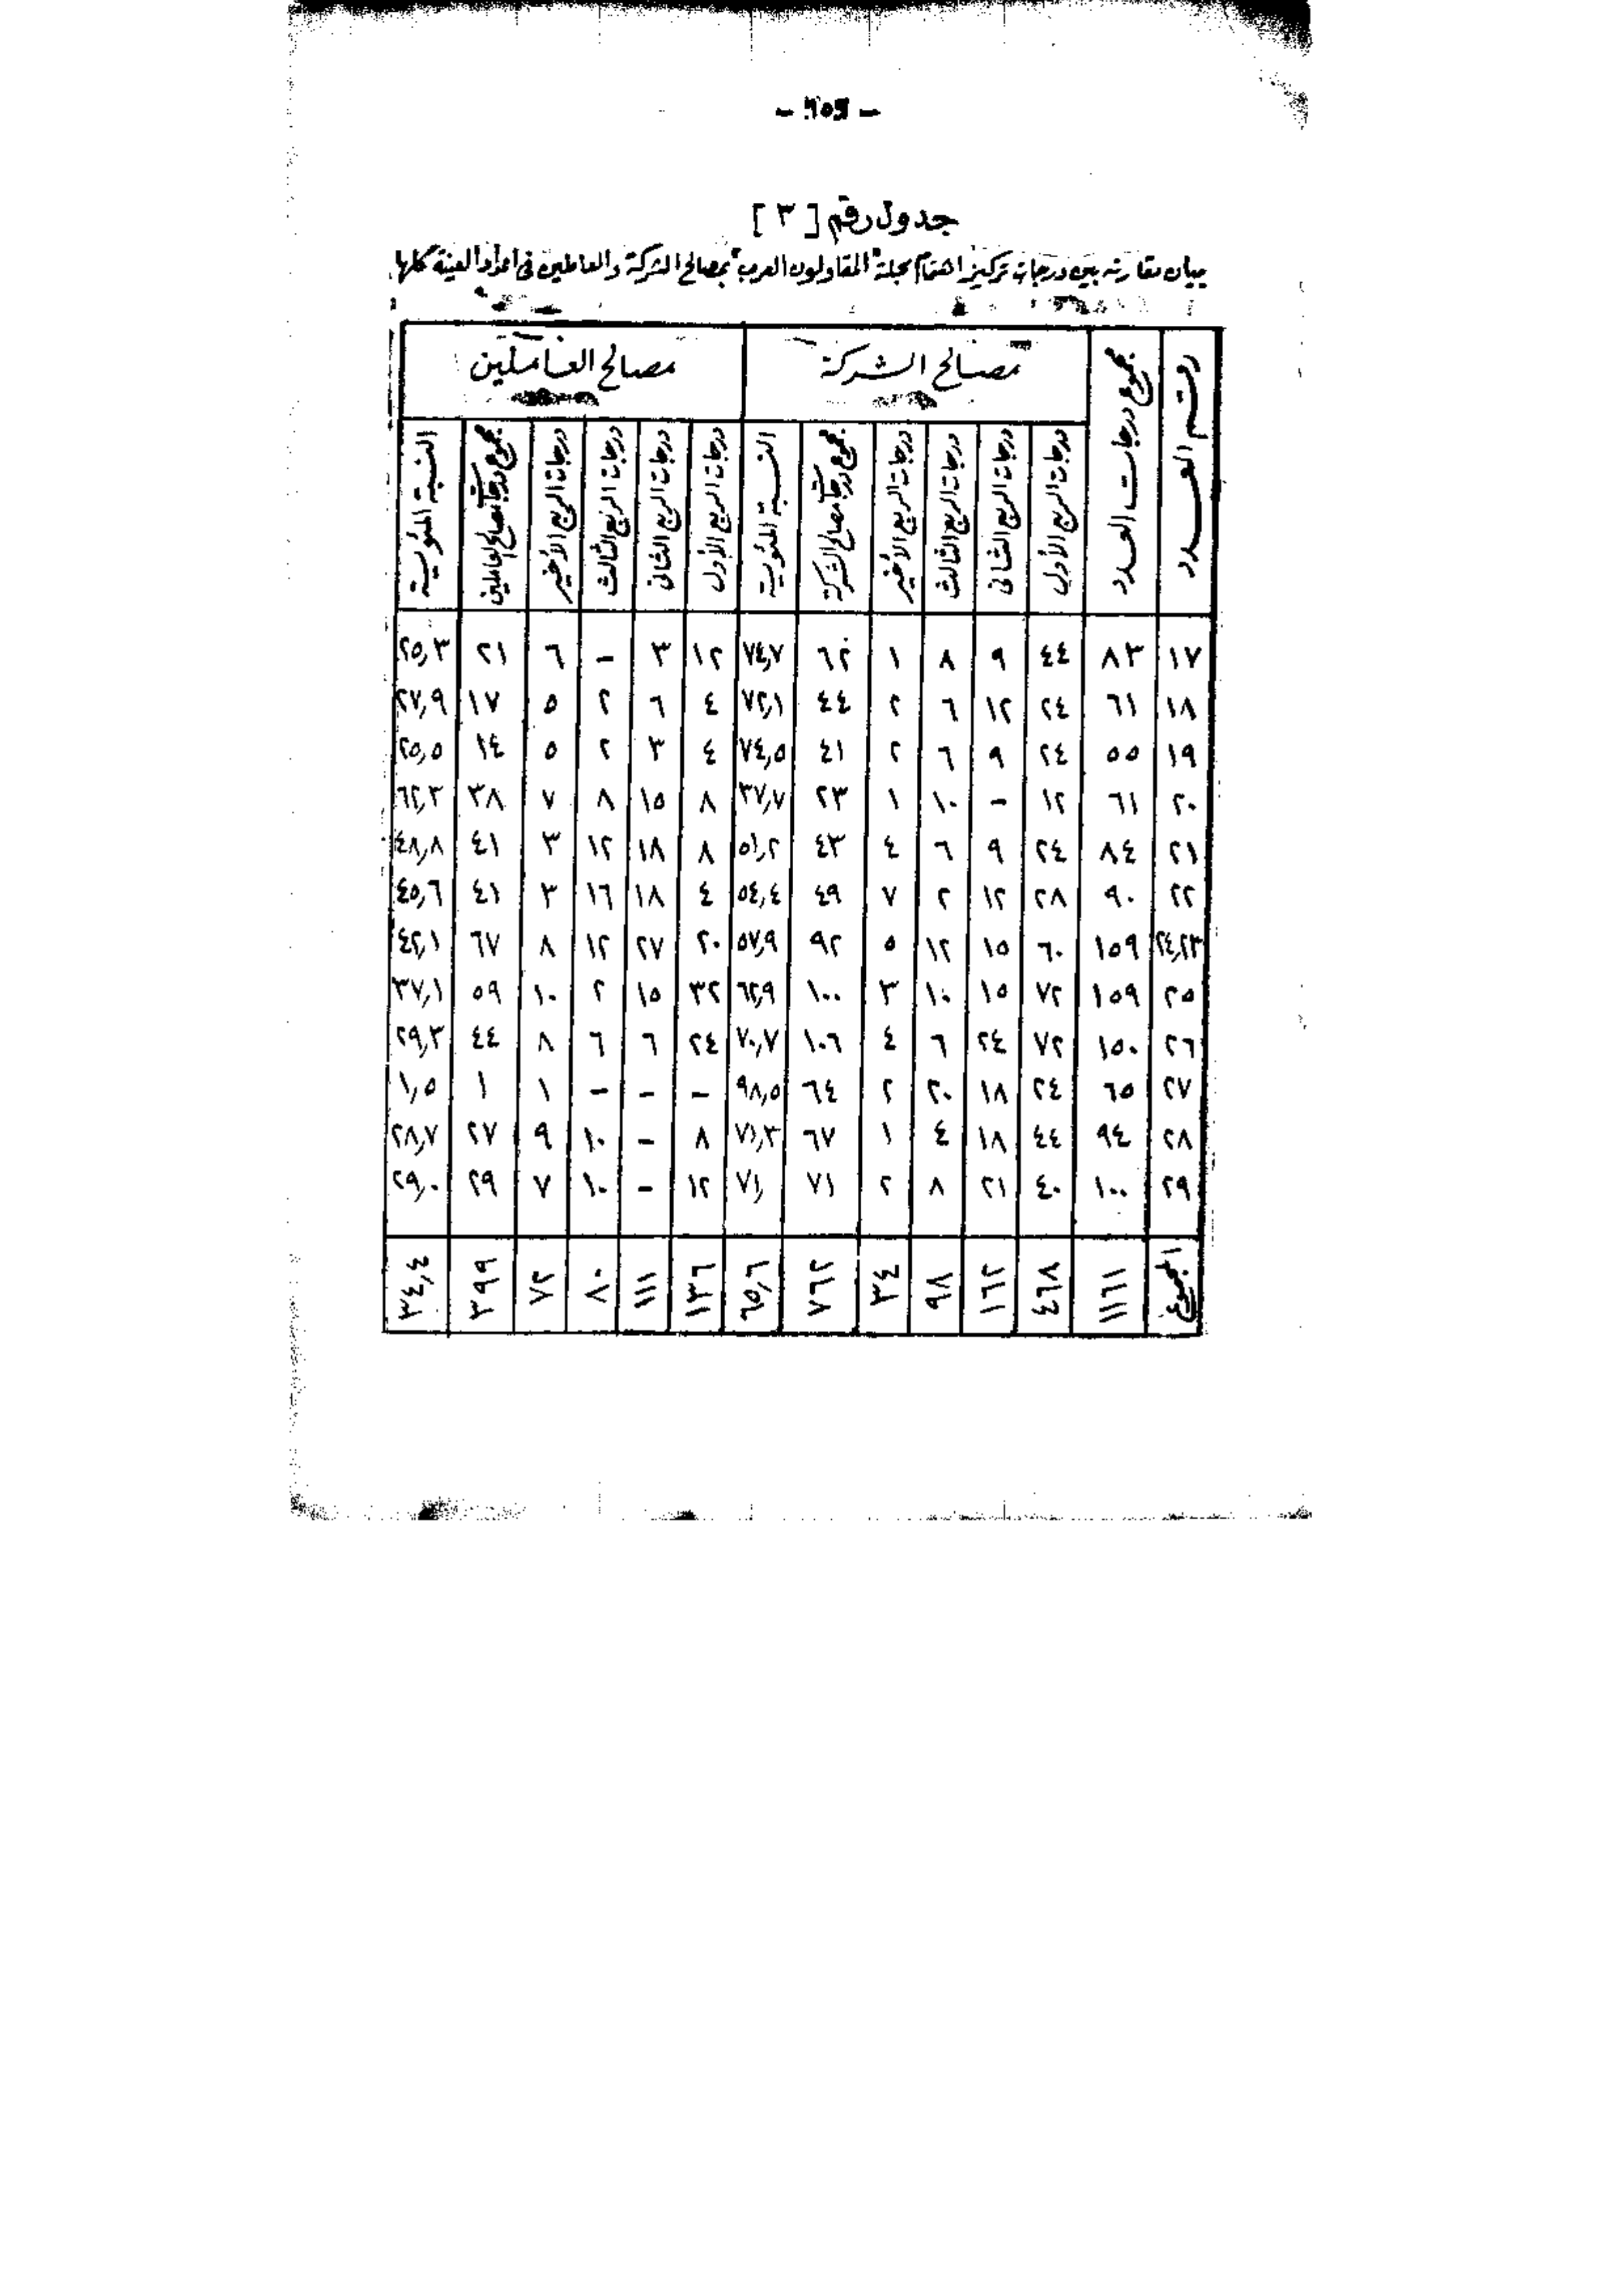 جدول رقم [ ٣ ]
بيان مقارنه بين درجات تركيز اهتمام مجلة "المقاولون العرب" بمصالح الشركة والعاملين فى اعداد العينة كلها
رقم العدد مجموع درجات العدد مصالح الشركة مصالح العاملين
درجات الربع الأول درجات الربع الثانى درجات الربع الثالث درجات الربع الأخير مجموع درجات مصالح الشركة النسبة المئوية درجات الربع الأول درجات الربع الثانى درجات الربع الثالث درجات الربع الأخير مجموع درجات مصالح العاملين النسبة المئوية
١٧ ٨٣ ٤٤ ٩ ٨ ١ ٦٢ ٧٤,٧ ١٢ ٣ - ٦ ٢١ ٢٥,٣
١٨ ٦١ ٢٤ ١٢ ٦ ٢ ٤٤ ٧٢,١ ٤ ٦ ٢ ٥ ١٧ ٢٧,٩
١٩ ٥٥ ٢٤ ٩ ٦ ٢ ٤١ ٧٤,٥ ٤ ٣ ٢ ٥ ١٤ ٢٥,٥
٢٠ ٦١ ١٢ - ١٠ ١ ٢٣ ٣٧,٧ ٨ ١٥ ٨ ٧ ٣٨ ٦٢,٣
٢١ ٨٤ ٢٤ ٩ ٦ ٤ ٤٣ ٥١,٢ ٨ ١٨ ١٢ ٣ ٤١ ٤٨,٨
٢٢ ٩٠ ٢٨ ١٢ ٢ ٧ ٤٩ ٥٤,٤ ٤ ١٨ ١٦ ٣ ٤١ ٤٥,٦
٢٤,٢٣ ١٥٩ ٦٠ ١٥ ١٢ ٥ ٩٢ ٥٧,٩ ٢٠ ٢٧ ١٢ ٨ ٦٧ ٤٢,١
٢٥ ١٥٩ ٧٢ ١٥ ١٠ ٣ ١٠٠ ٦٢,٩ ٣٢ ١٥ ٢ ١٠ ٥٩ ٣٧,١
٢٦ ١٥٠ ٧٢ ٢٤ ٦ ٤ ١٠٦ ٧٠,٧ ٢٤ ٦ ٦ ٨ ٤٤ ٢٩,٣
٢٧ ٦٥ ٢٤ ١٨ ٢٠ ٢ ٦٤ ٩٨,٥ - - - ١ ١ ١,٥
٢٨ ٩٤ ٤٤ ١٨ ٤ ١ ٦٧ ٧١,٣ ٨ - ١٠ ٩ ٢٧ ٢٨,٧
٢٩ ١٠٠ ٤٠ ٢١ ٨ ٢ ٧١ ٧١, ١٢ - ١٠ ٧ ٢٩ ٢٩,٠
المجموع ١١٦١ ٤٦٨ ١٦٢ ٩٨ ٣٤ ٧٦٢ ٦٥,٦ ١٣٦ ١١١ ٨٠ ٧٢ ٣٩٩ ٣٤,٤